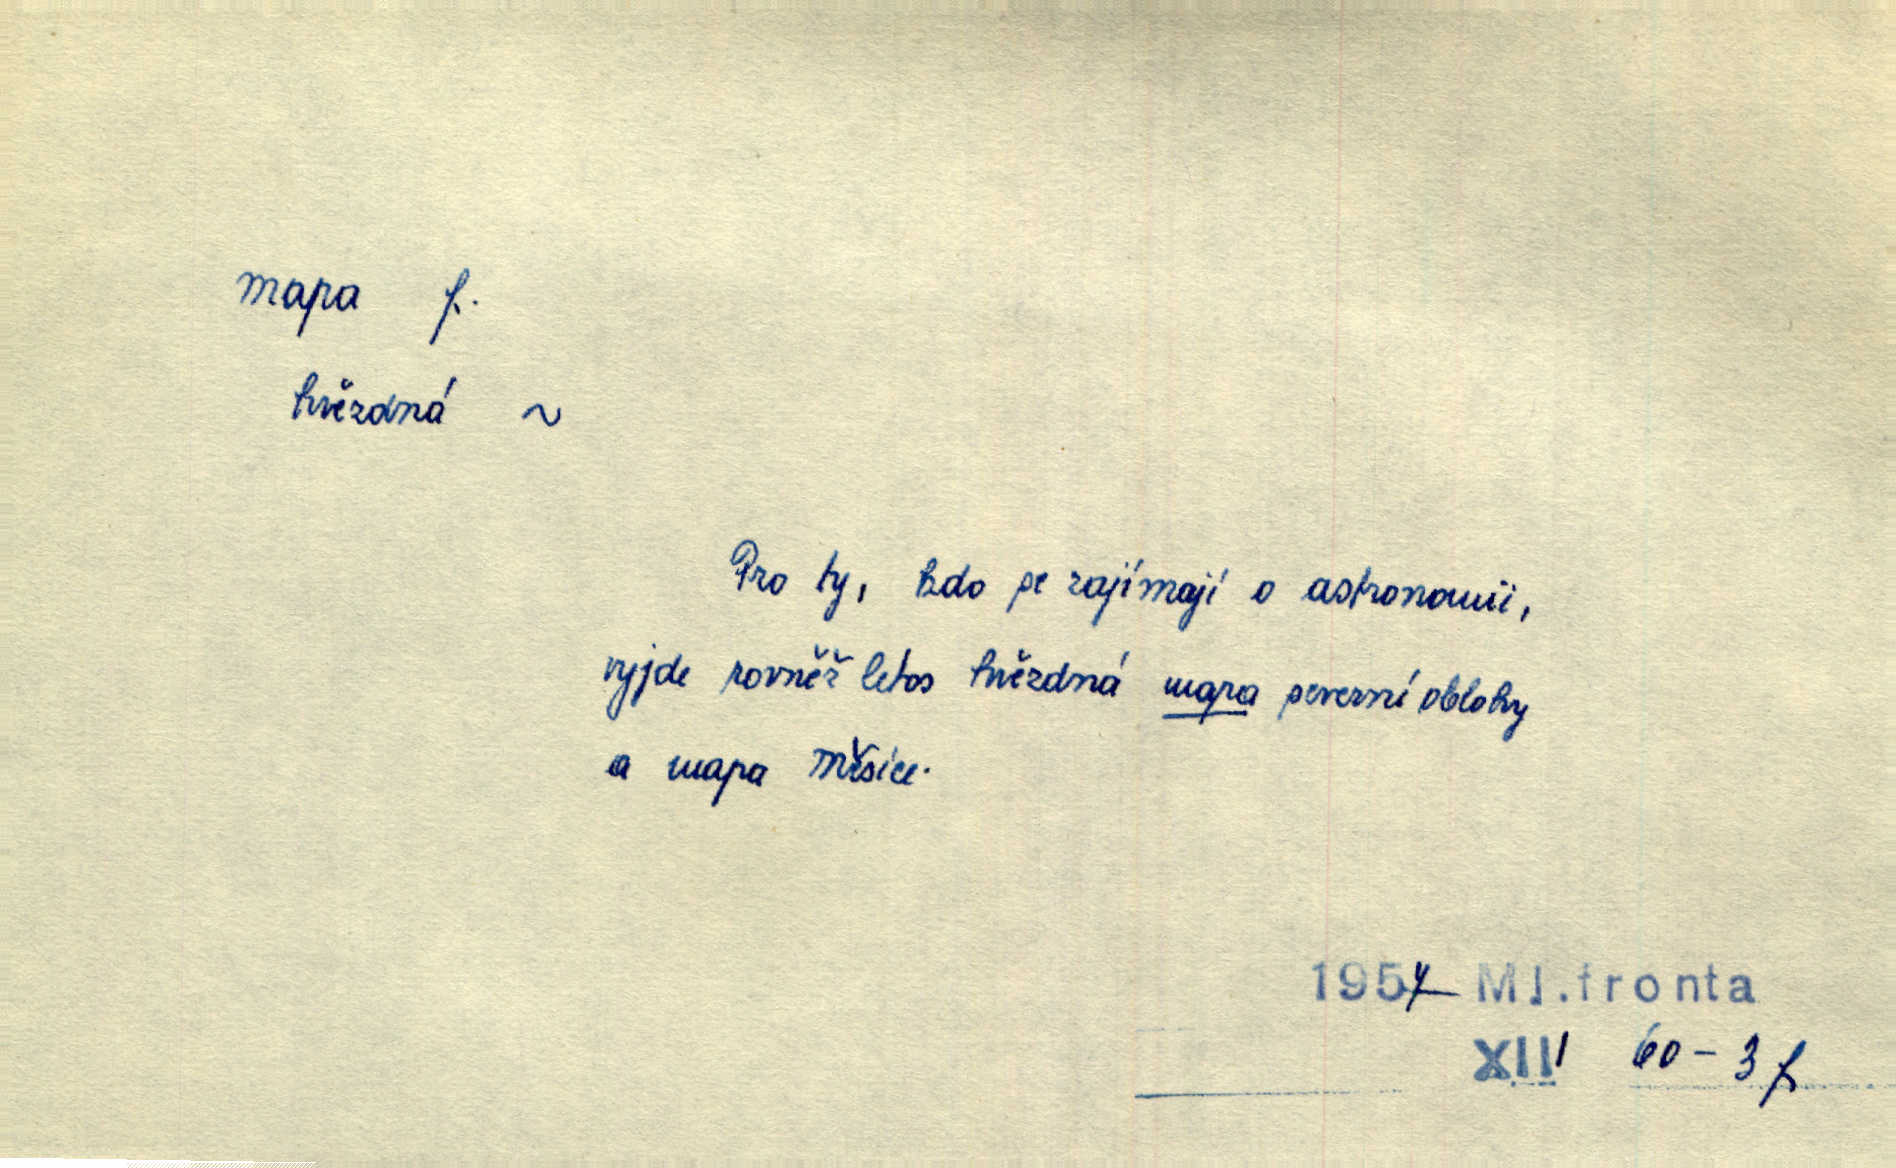 mapa f.
hvězdná ~
Pro ty, kdo se zajímají o astronomii,
vyjde rovněž letos hvězdná mapa severní oblohy
a mapa měsíce.
1957 Ml.fronta
XIII 60-3 f